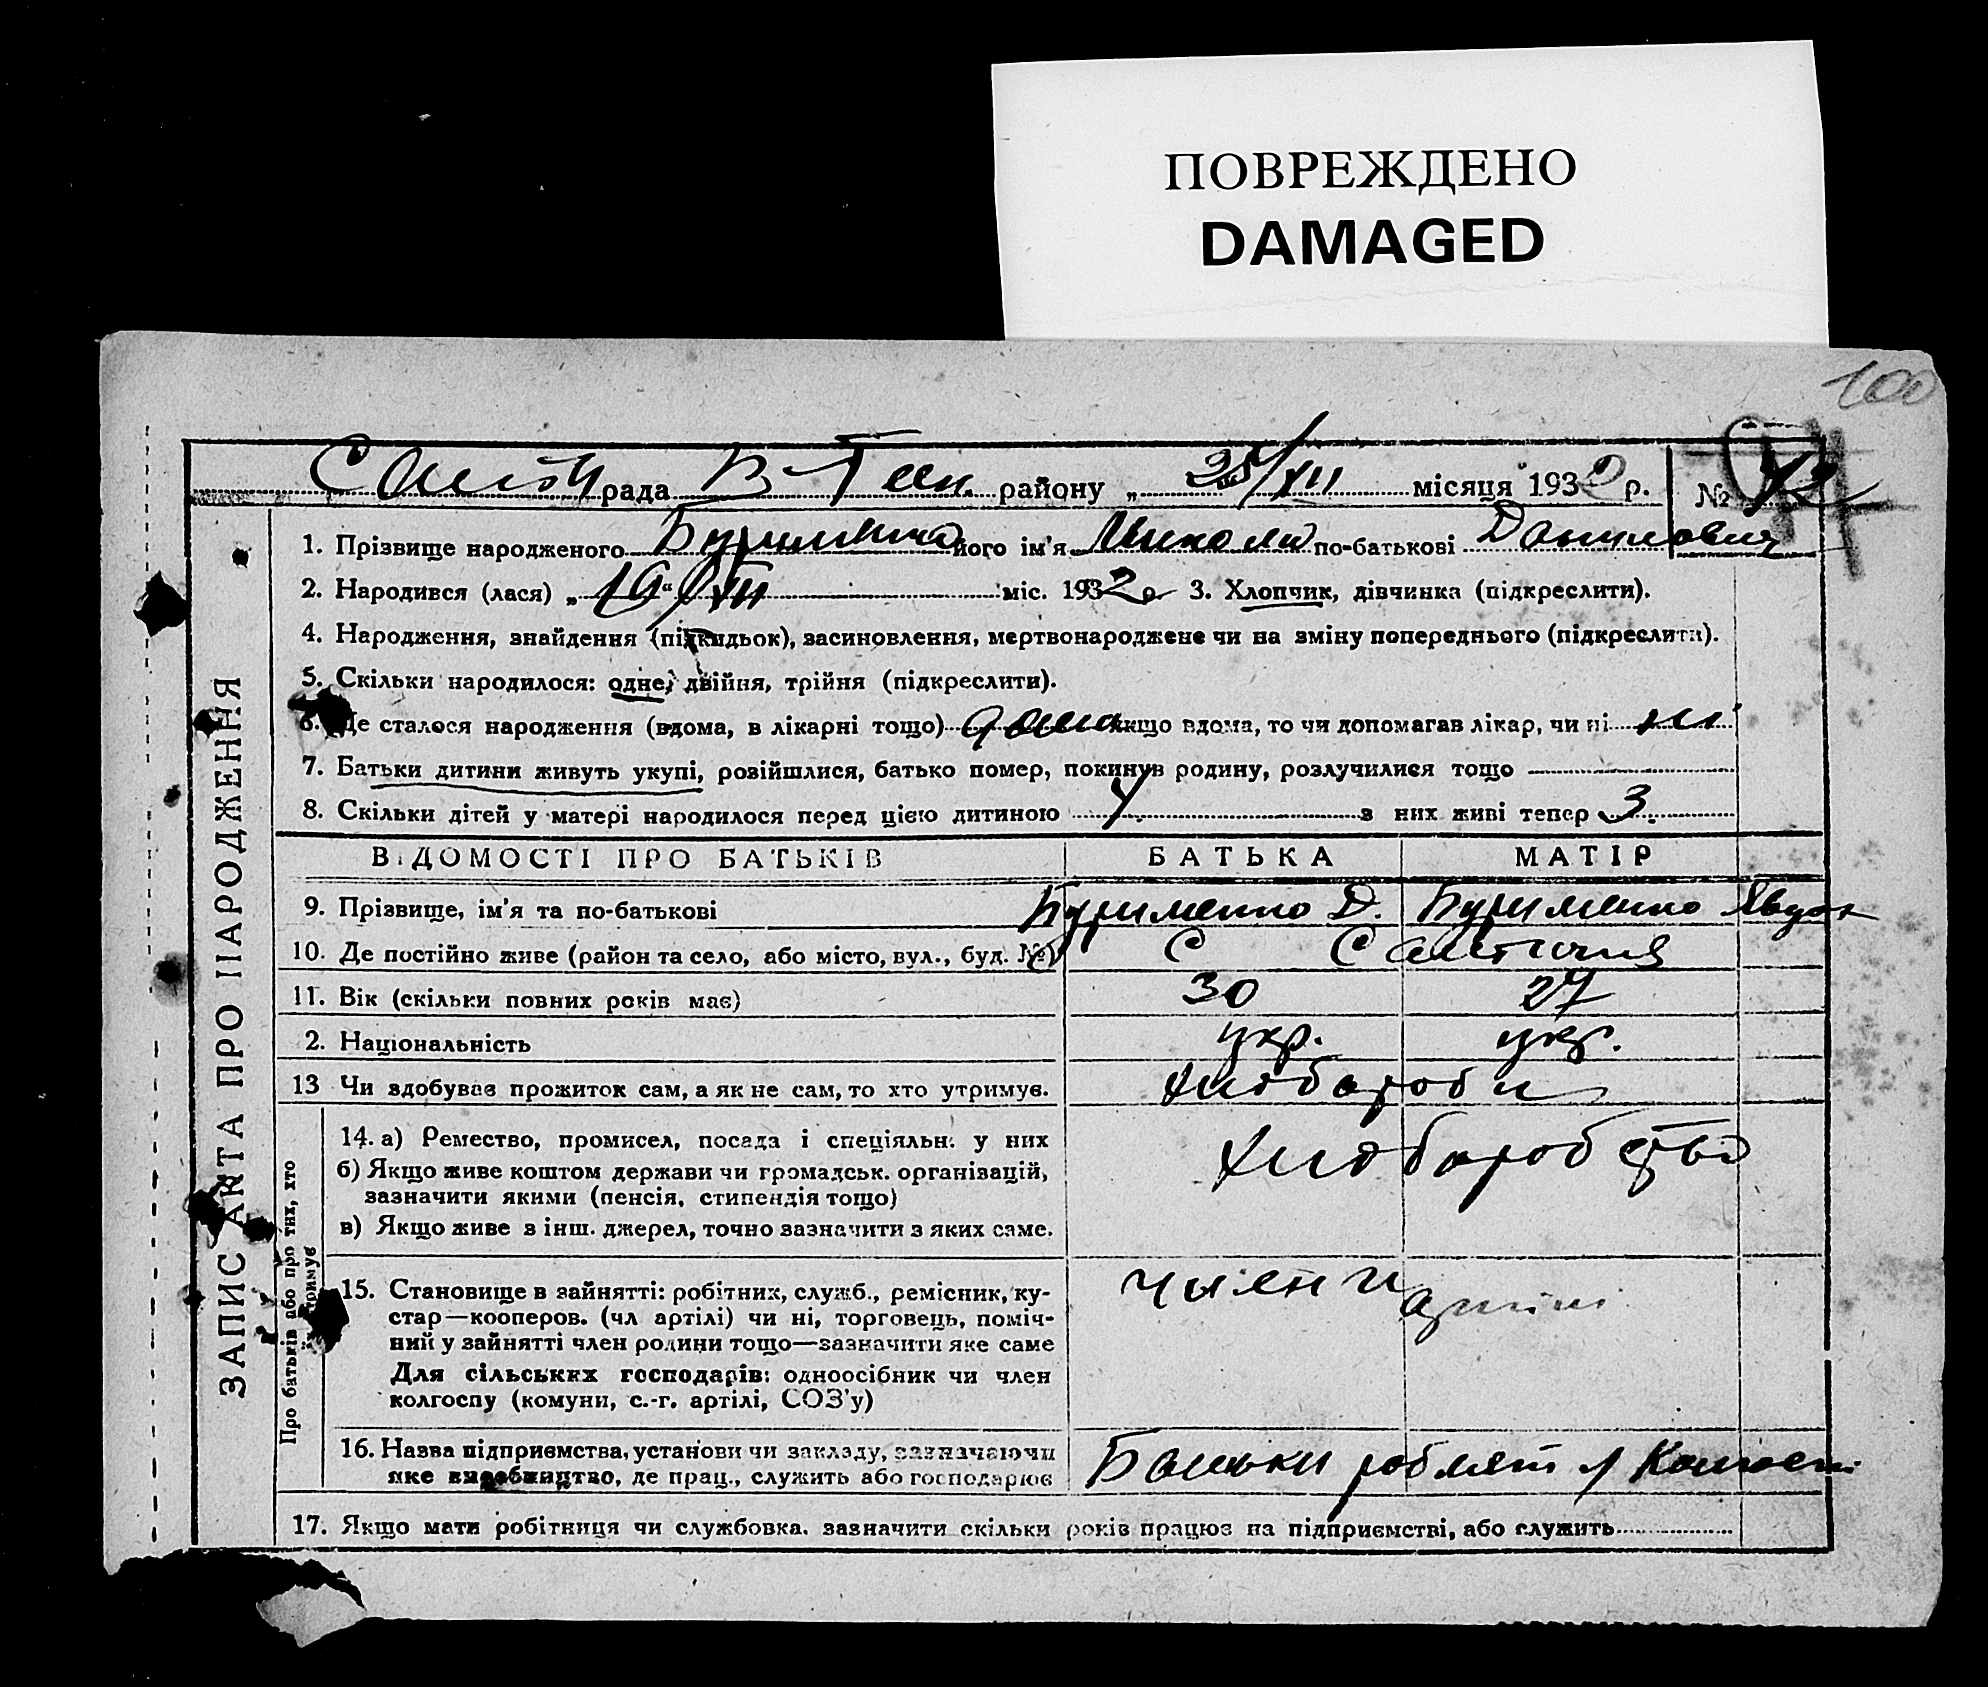 ПОВРЕЖДЕНО
DAMAGED
100
рада В-Ток. району „ 25/XII місяця 1932 р. №
1. Прізвище народженого Бурименко його ім'я Микола по-батькові Данилович
2. Народився (лася) „19“/XII міс. 1932 р 3. Хлопчик, дівчинка (підкреслити).
4. Народження, знайдення (підкидьок), засиновлення, мертвонароджене чи на зміну попереднього (підкреслити).
5. Скільки народилося: одне, двійня, трійня (підкреслити).
6. Де сталося народження (вдома, в лікарні тощо) дома якщо вдома, то чи допомагав лікар, чи ні ні
7. Батьки дитини живуть укупі, розійшлися, батько помер, покинув родину, розлучилися тощо
8. Скільки дітей у матері народилося перед цією дитиною 4. з них живі тепер 3.
ВІДОМОСТІ ПРО БАТЬКІВ БАТЬКА МАТІР
9. Прізвище, ім'я та по-батькові Бурименко Д. Бурименко Явдок
10. Де постійно живе (район та село, або місто, вул., буд. №) С Салтичия
11. Вік (скільки повних років має) 30 27
2. Національність укр. укр.
13 Чи здобуває прожиток сам, а як не сам, то хто утримує. хлібороби
14. а) Ремество, промисел, посада і спеціяльн. у них хліборобство
б) Якщо живе коштом держави чи громадськ. організацій,
зазначити якими (пенсія, стипендія тощо)
в) Якщо живе з інш. джерел, точно зазначити з яких саме.
15. Становище в зайнятті: робітник, служб., ремісник, ку-
стар—кооперов. (чл артілі) чи ні, торговець, поміч-
ний у зайнятті член родини тощо—зазначити яке саме
Для сільських господарів: одноосібник чи член
колгоспу (комуни, с.-г. артілі, СОЗ'у)
члени артілі
16. Назва підприємства, установи чи закладу, зазначаючи
яке виробництво, де прац., служить або господарює
Батьки роблять в Колгоспі
17. Якщо мати робітниця чи службовка. зазначити скільки років працює на підприємстві, або служить
ЗАПИС АКТА ПРО НАРОДЖЕННЯ
Про батьків або про тих, хто
утримує